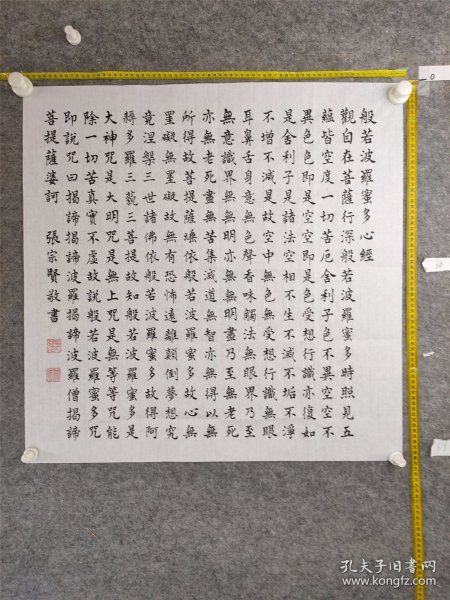 般若波羅蜜多心經
觀自在菩薩行深般若波羅蜜多時照見五
蘊皆空度一切苦厄舍利子色不異空空不
異色色即是空空即是色受想行識亦復如
是舍利子是諸法空相不生不滅不垢不淨
不增不減是故空中無色無受想行識無眼
耳鼻舌身意無色聲香味觸法無眼界乃至
無意識界無無明亦無無明盡乃至無老死
亦無老死盡無苦集滅道無智亦無得以無
所得故菩提薩埵依般若波羅蜜多故心無
罣礙無罣礙故無有恐怖遠離顛倒夢想究
竟涅槃三世諸佛依般若波羅蜜多故得阿
耨多羅三藐三菩提故知般若波羅蜜多是
大神咒是大明咒是無上咒是無等等咒能
除一切苦真實不虛故說般若波羅蜜多咒
即說咒曰揭諦揭諦波羅揭諦波羅僧揭諦
菩提薩婆訶 張宗賢敬書
0
孔夫子旧书网
www.kongfz.com